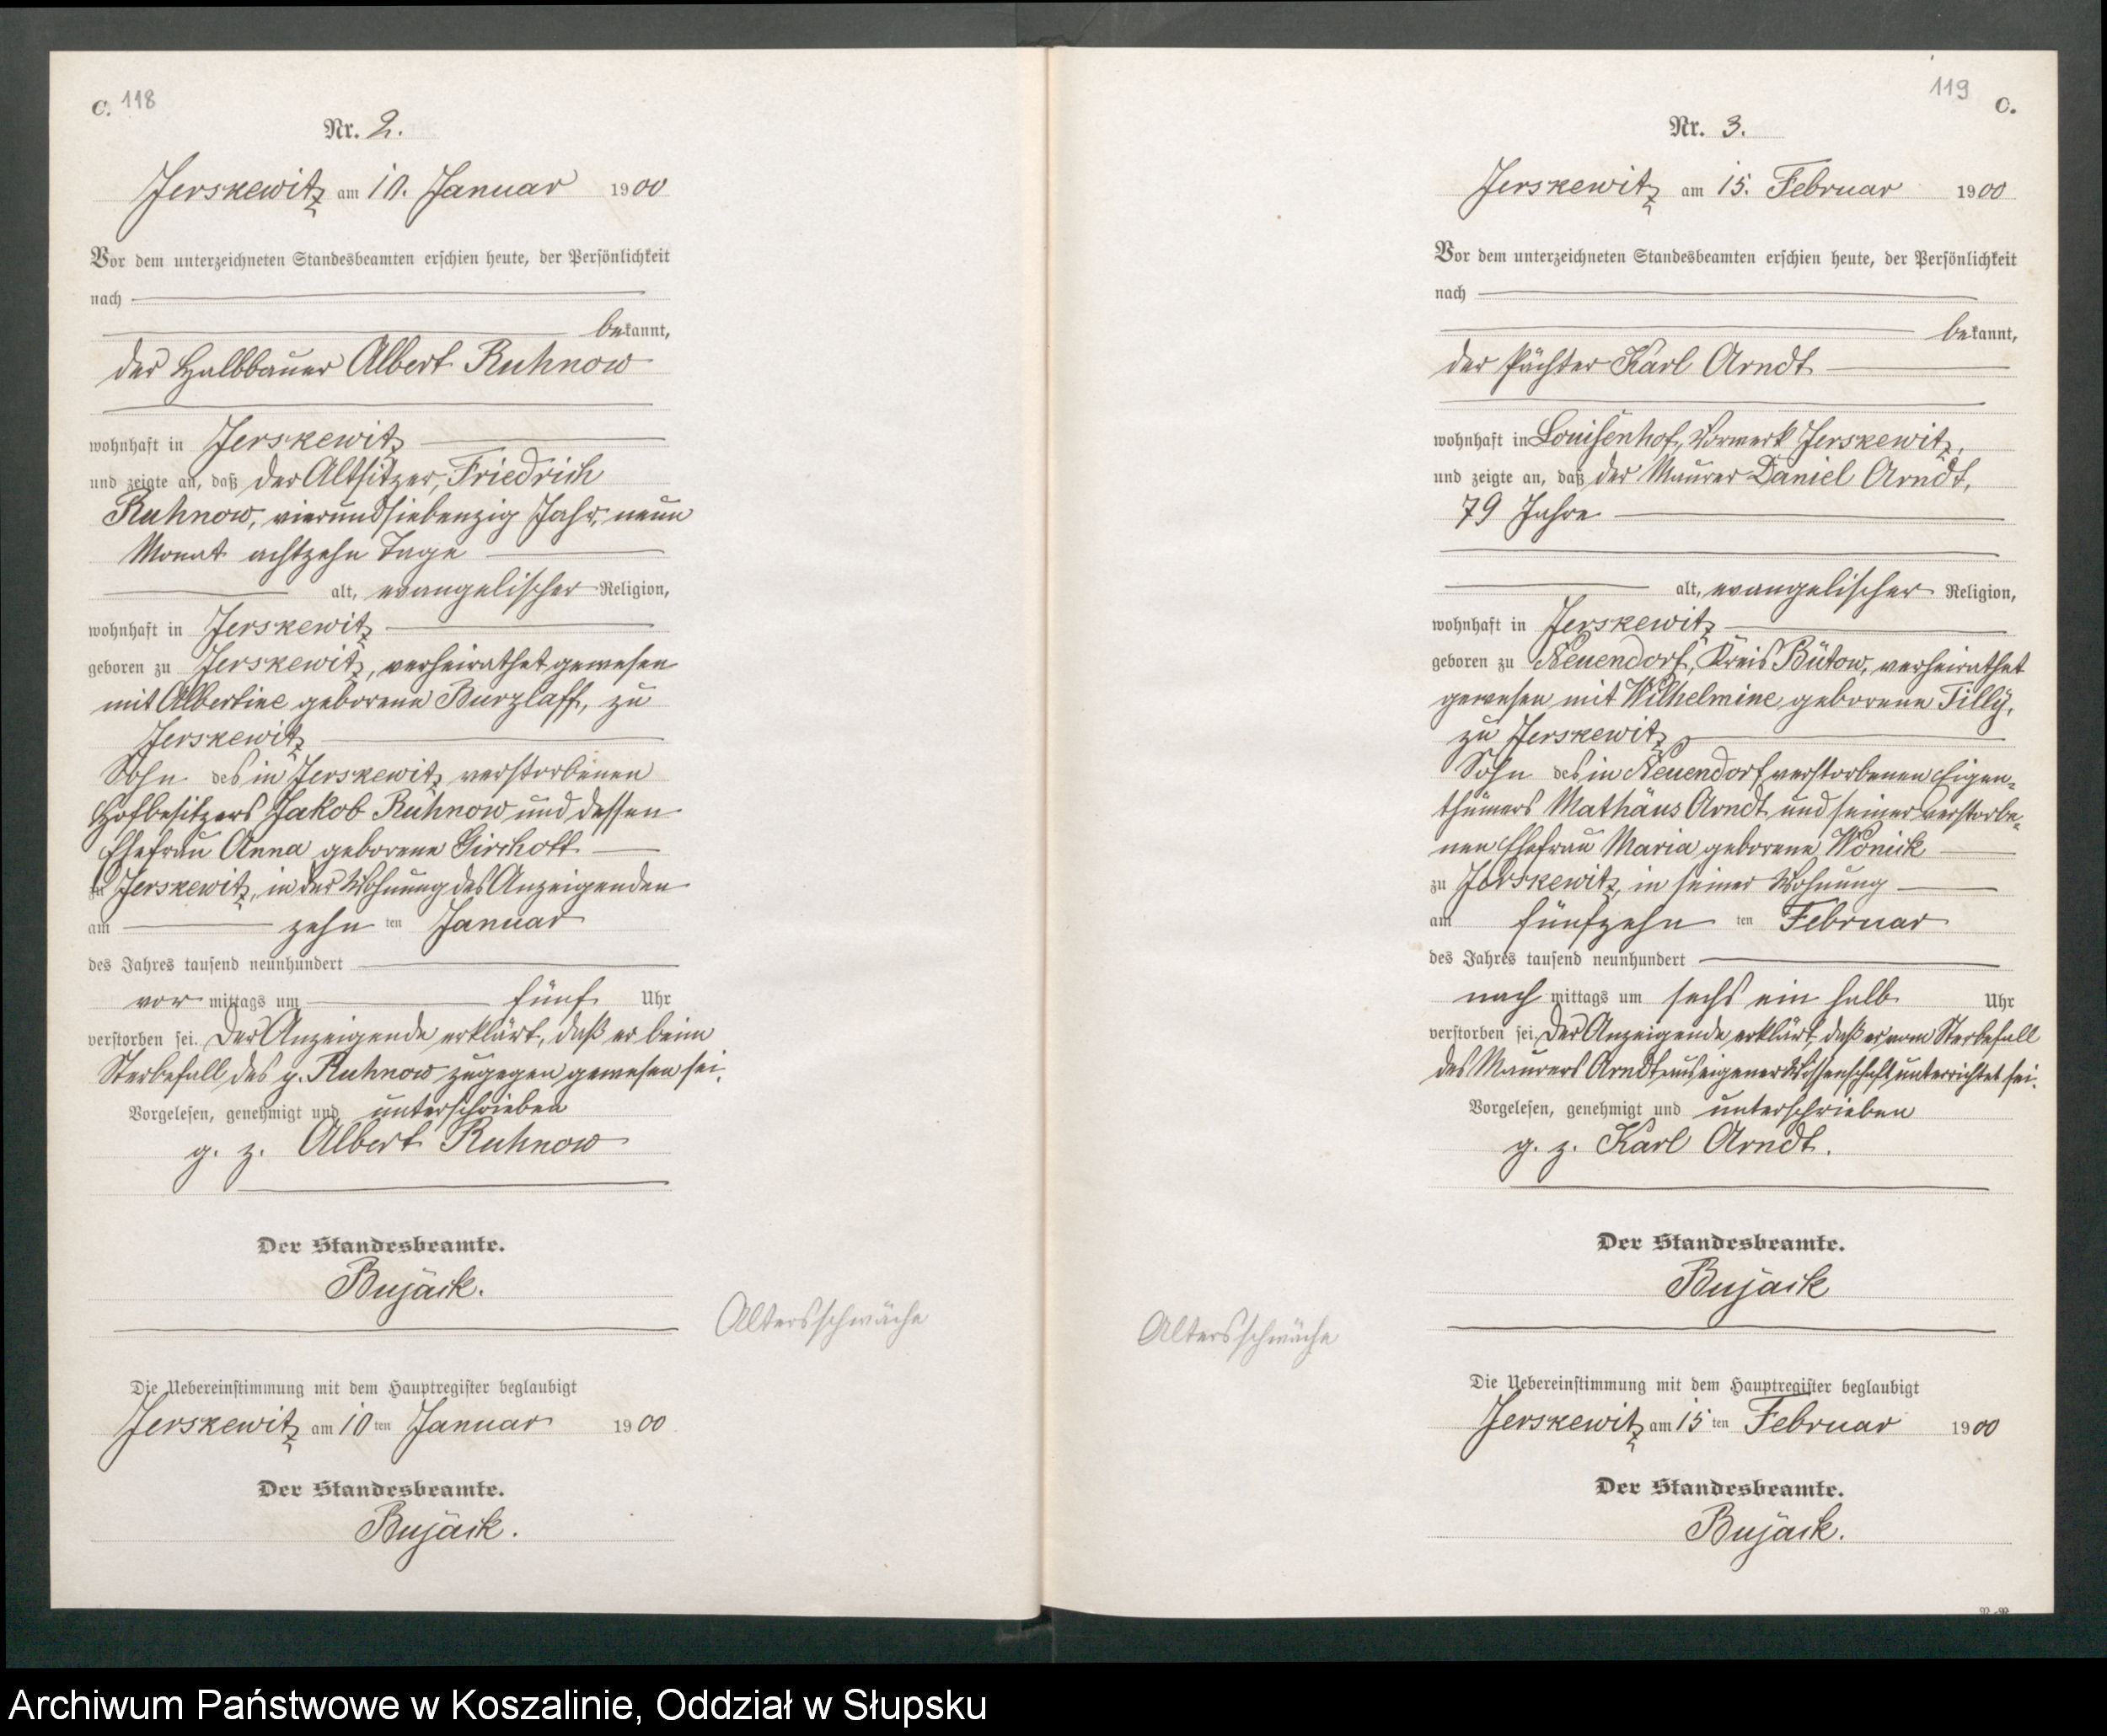 C. 118
Nr. 2.
Jerskewitz am 10. Januar 1900
Vor dem unterzeichneten Standesbeamten erschien heute, der Persönlichkeit
nach
bekannt,
der Halbbauer Albert Ruhnow
wohnhaft in Jerskewitz
und zeigte an, daß der Altsitzer, Friedrich
Ruhnow, vierundsiebenzig Jahr, neun
Monat achtzehn Tage
alt, evangelischer Religion,
wohnhaft in Jerskewitz
geboren zu Jerskewitz, verheirathet gewesen
mit Albertine geborene Burzlaff, zu
Jerskewitz
Sohn des in Jerskewitz verstorbenen
Hofbesitzers Jakob Ruhnow und dessen
Ehefrau Anna geborene
zu Jerskewitz, in der Wohnung des Anzeigenden
am zehn ten Januar
des Jahres tausend neunhundert
vor mittags um fünf Uhr
verstorben sei. Der Anzeigende erklärt, daß er beim
Sterbefall des p. Ruhnow zugegen gewesen sei.
Vorgelesen, genehmigt und unterschrieben
g. z. Albert Ruhnow
Der Standesbeamte.
Bujack.
Altersschwäche
Die Uebereinstimmung mit dem Hauptregister beglaubigt
Jerskewitz am 10 ten Januar 1900
Der Standesbeamte.
Bujack.
119 C.
Nr. 3.
Jerskewitz am 15. Februar 1900
Vor dem unterzeichneten Standesbeamten erschien heute, der Persönlichkeit
nach
bekannt,
der Pächter Karl Arndt
wohnhaft in Louisenhof, Vorwerk Jerskewitz,
und zeigte an, daß der Maurer Daniel Arndt,
79 Jahre
alt, evangelischer Religion,
wohnhaft in Jerskewitz
geboren zu Neuendorf, Kreis Bütow, verheirathet
gewesen mit Wilhelmine geborene Tilly,
zu Jerskewitz
Sohn des in Neuendorf verstorbenen Eigen-
thümers Mathäus Arndt und seiner verstorbe-
nen Ehefrau Maria geborene Wonick
zu Jerskewitz, in seiner Wohnung
am fünfzehn ten Februar
des Jahres tausend neunhundert
nach mittags um sechs ein halb Uhr
verstorben sei. Der Anzeigende erklärt, daß er vom Sterbefall
des Maurers Arndt aus eigener Wissenschaft unterrichtet sei.
Vorgelesen, genehmigt und unterschrieben
g. z. Karl Arndt.
Der Standesbeamte.
Bujack
Altersschwäche
Die Uebereinstimmung mit dem Hauptregister beglaubigt
Jerskewitz am 15 ten Februar 1900
Der Standesbeamte.
Bujack.
Archiwum Państwowe w Koszalinie, Oddział w Słupsku